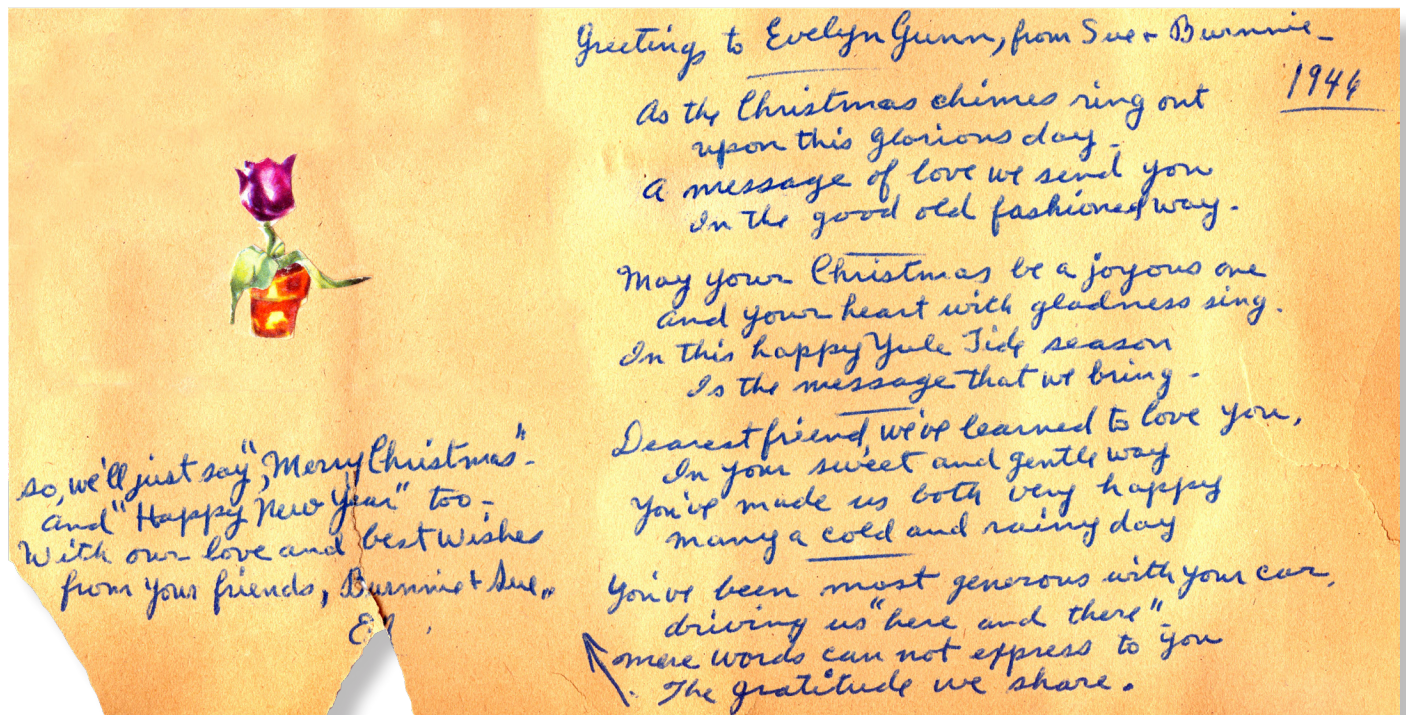 Greetings to Evelyn Gunn, from Sue + Burnnie-
1946
As the Christmas chimes ring out
upon this glorious day-
A message of love we send you
In the good old fashioned way.
May your Christmas be a joyous one
and your heart with gladness sing.
In this happy Yule Tide season
Is the message that we bring-
Dearest friend, we've learned to love you,
In your sweet and gentle way
You've made us both very happy
many a cold and rainy day
You've been most generous with your car,
driving us "here and there"-
mere words can not express to you
The gratitude we share.
so, we'll just say, "Merry Christmas"-
and "Happy New Year" too-
With our love and best wishes
from your friends, Burnnie + Sue.